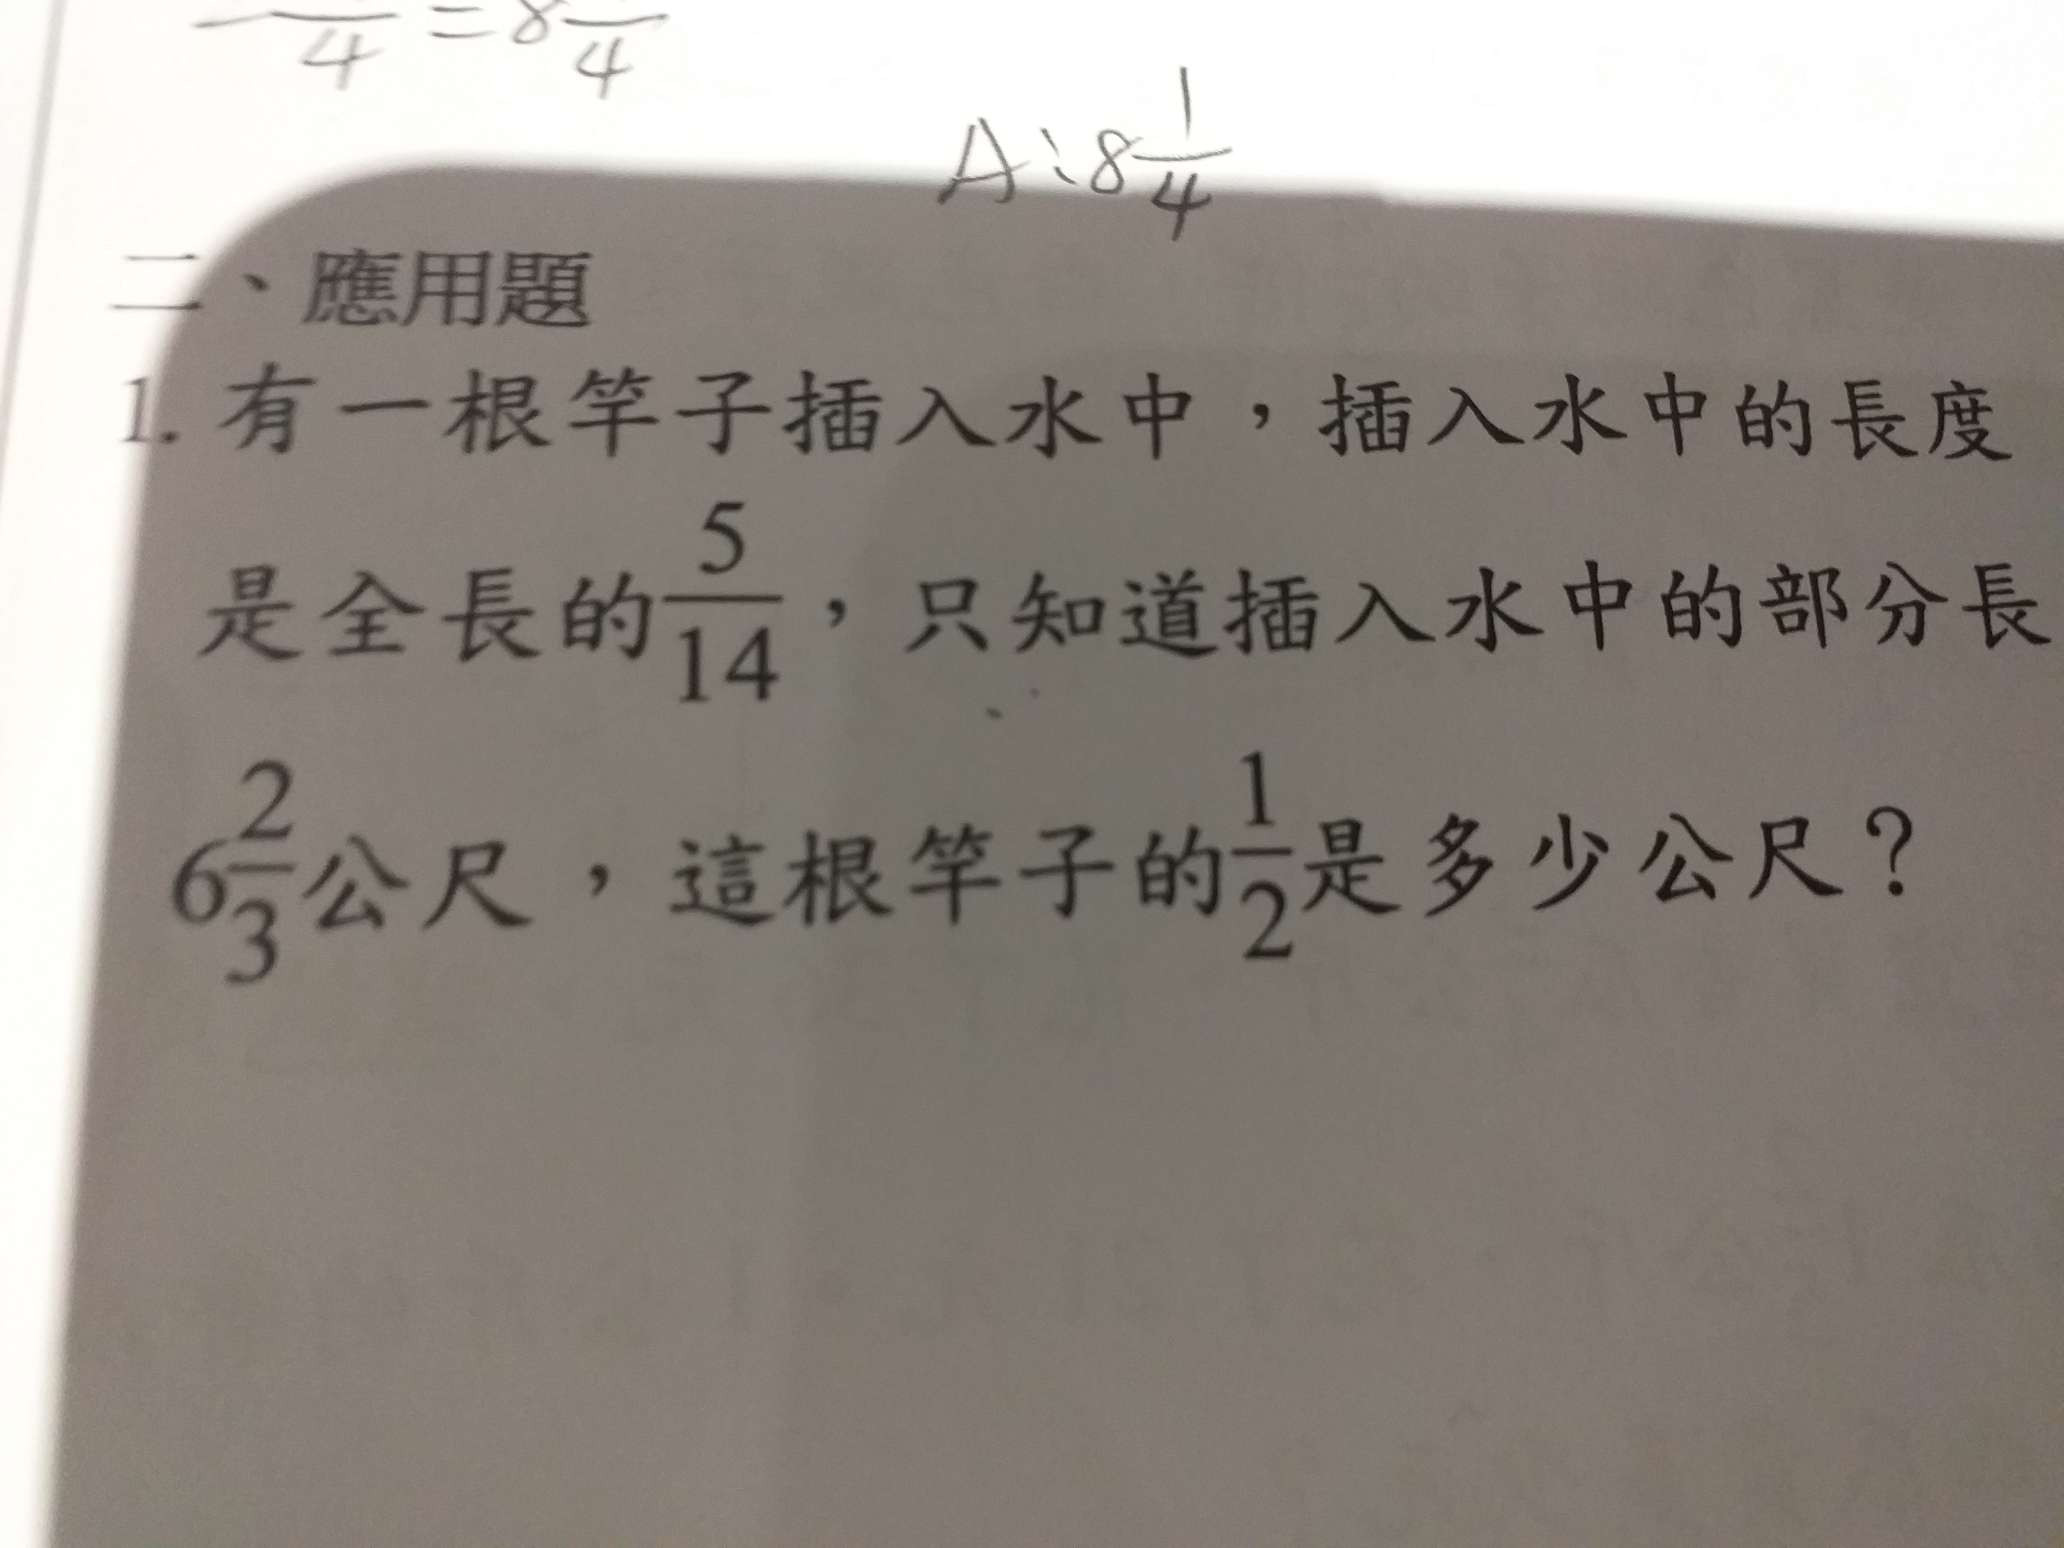 4 = 8 4
A：8 1/4
二、應用題
1. 有一根竿子插入水中，插入水中的長度
是全長的5/14，只知道插入水中的部分長
6 2/3公尺，這根竿子的1/2是多少公尺？